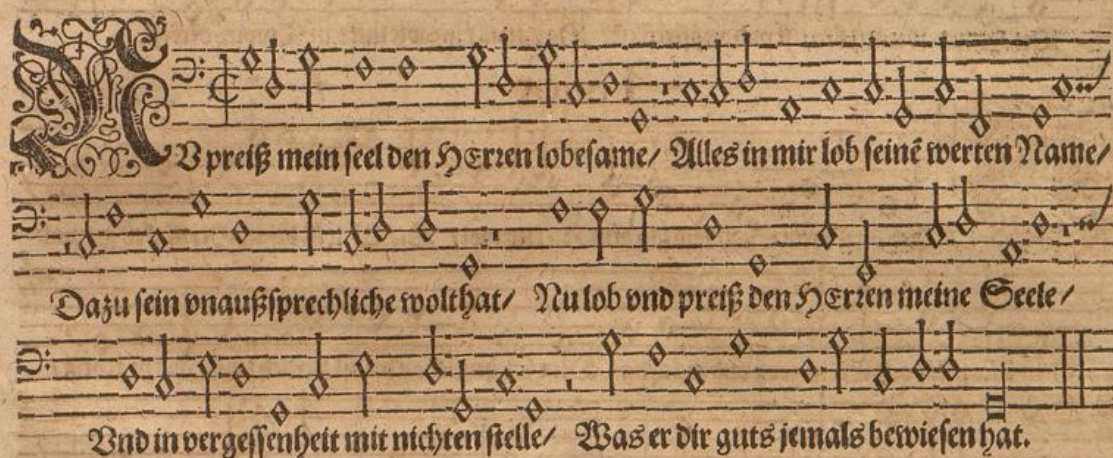 NV preiß mein seel den HErren lobesame/ Alles in mir lob seinē werten Name/
Dazu sein vnaußsprechliche wolthat/ Nu lob vnd preiß den HErren meine Seele/
Vnd in vergessenheit mit nichten stelle/ Was er dir guts jemals bewiesen hat.